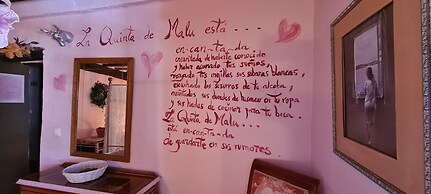 La Quinta de Malu está . . .
en-can-ta-da
encantada de haberte conocido
y haber acunado tus sueños,
tus mejillas sus sábanas blancas,
escuchando los susurros de tu alcoba,
sus duendes de humear en tu ropa
y sus hadas de cocinar para tu boca.
La Quinta de Malu...
está en-can-ta-da
de guardarte en sus rumores.